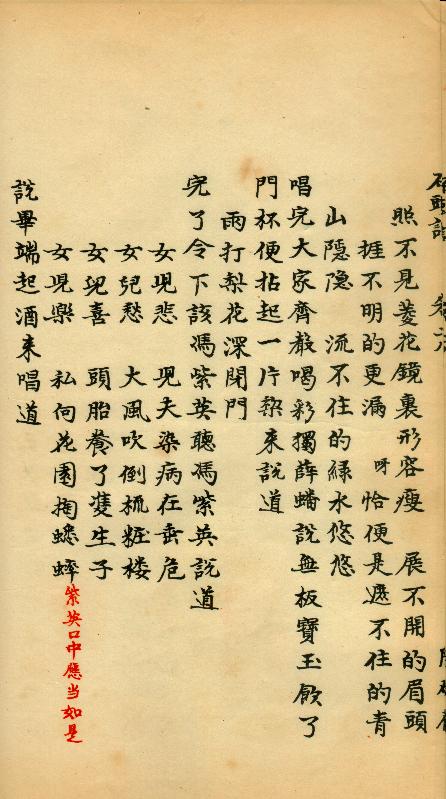 石頭記
照不見菱花鏡裏形容瘦　展不開的眉頭
捱不明的更漏　呀恰便是遮不住的青
山隱隱　流不住的綠水悠悠
唱完大家齊聲喝彩獨薛蟠說無板寶玉飲了
門杯便拈起一片梨來說道
雨打梨花深閉門
完了令下該馮紫英聽馮紫英說道
女兒悲　兒夫染病在垂危
女兒愁　大風吹倒梳粧楼
女兒喜　頭胎養了雙生子
女兒樂　私向花園掏蟋蟀紫英口中應当如是
說畢端起酒來唱道